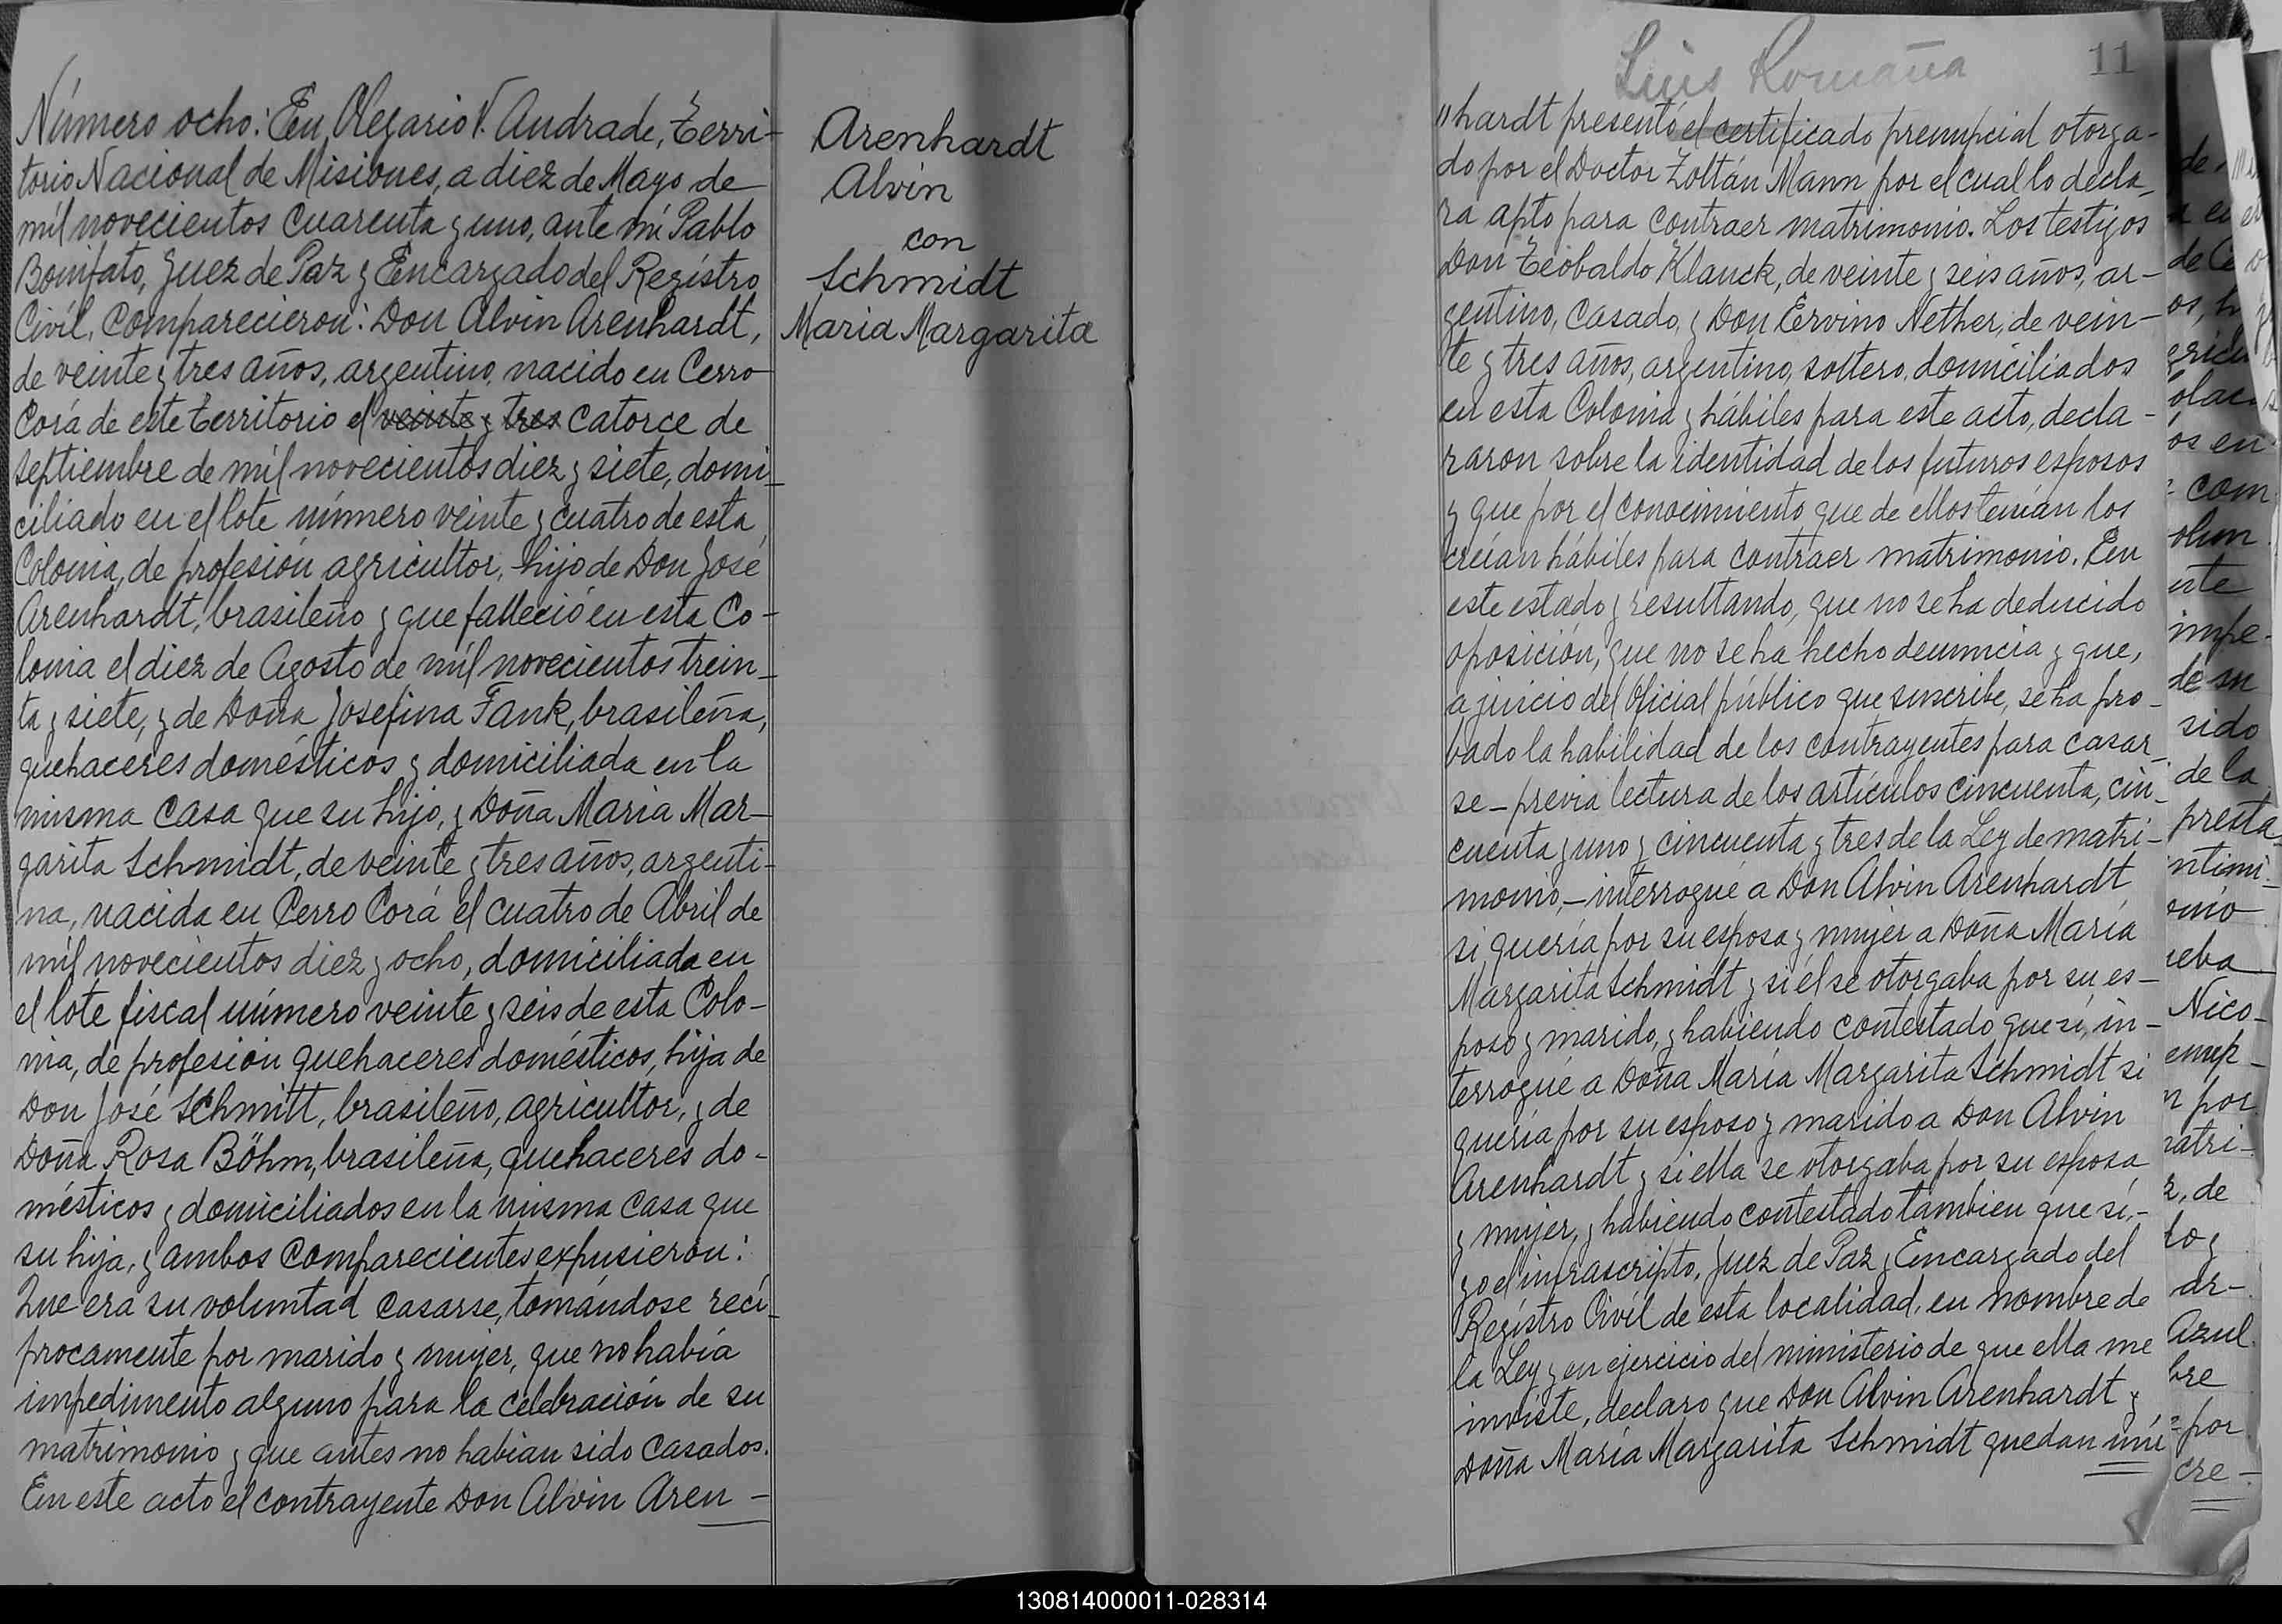 Número ocho: En Olegario V. Andrade, Terri-
torio Nacional de Misiones, a diez de Mayo de
mil novecientos cuarenta y uno, ante mí Pablo
Bonifato, Juez de Paz y Encargado del Registro
Civil, Comparecieron: Don Alvin Arenhardt,
de veinte y tres años, argentino, nacido en Cerro
Corá de este territorio el veinte y tres catorce de
septiembre de mil novecientos diez y siete, domi-
ciliado en el lote número veinte y cuatro de esta
Colonia, de profesión agricultor, hijo de Don José
Arenhardt, brasileño y que falleció en esta Co-
lonia el diez de Agosto de mil novecientos trein-
ta y siete, y de Doña Josefina Fank, brasileña,
quehaceres domésticos y domiciliada en la
misma casa que su hijo, y Doña Maria Mar-
garita Schmidt, de veinte y tres años, argenti-
na, nacida en Cerro Corá el cuatro de Abril de
mil novecientos diez y ocho, domiciliada en
el lote fiscal número veinte y seis de esta Colo-
nia, de profesión quehaceres domésticos, hija de
Don José Schmitt, brasileño, agricultor, y de
Doña Rosa Böhm, brasileña, quehaceres do-
mésticos y domiciliados en la misma casa que
su hija, y ambos comparecientes expusieron:
Que era su voluntad casarse, tomándose recí-
procamente por marido y mujer, que no había
impedimento alguno para la celebración de su
matrimonio y que antes no habian sido casados.
En este acto el contrayente Don Alvin Aren-
Arenhardt
Alvin
con
Schmidt
Maria Margarita
Luis Romaña
11
"hardt presentó el certificado prenupcial otorga-
do por el Doctor Zoltán Mann por el cual lo decla-
ra apto para contraer matrimonio. Los testigos
Don Teobaldo Klanck, de veinte y seis años, ar-
gentino, casado, y Don Ervino Nether, de vein-
te y tres años, argentino, soltero, domiciliados
en esta Colonia y hábiles para este acto, decla-
raron sobre la identidad de los futuros esposos
y que por el conocimiento que de ellos tenían los
creían hábiles para contraer matrimonio. En
este estado y resultando, que no se ha deducido
oposición, que no se ha hecho denuncia y que,
a juicio del Oficial público que suscribe, se ha pro-
bado la habilidad de los contrayentes para casar-
se - previa lectura de los artículos cincuenta, cin-
cuenta y uno y cincuenta y tres de la Ley de matri-
monio, - interrogué a Don Alvin Arenhardt
si quería por su esposa y mujer a Doña María
Margarita Schmidt y si él se otorgaba por su es-
poso y marido, y habiendo contestado que si, in-
terrogué a Doña María Margarita Schmidt si
quería por su esposo y marido a Don Alvin
Arenhardt y si ella se otorgaba por su esposa
y mujer, y habiendo contestado tambien que sí, -
yo el infrascripto, Juez de Paz y Encargado del
Registro Civil de esta localidad, en nombre de
la Ley y en ejercicio del ministerio de que ella me
inviste, declaro que Don Alvin Arenhardt y
Doña María Margarita Schmidt quedan uni-
de la
presta-
Nico-
Azul
por
cre-
130814000011-028314